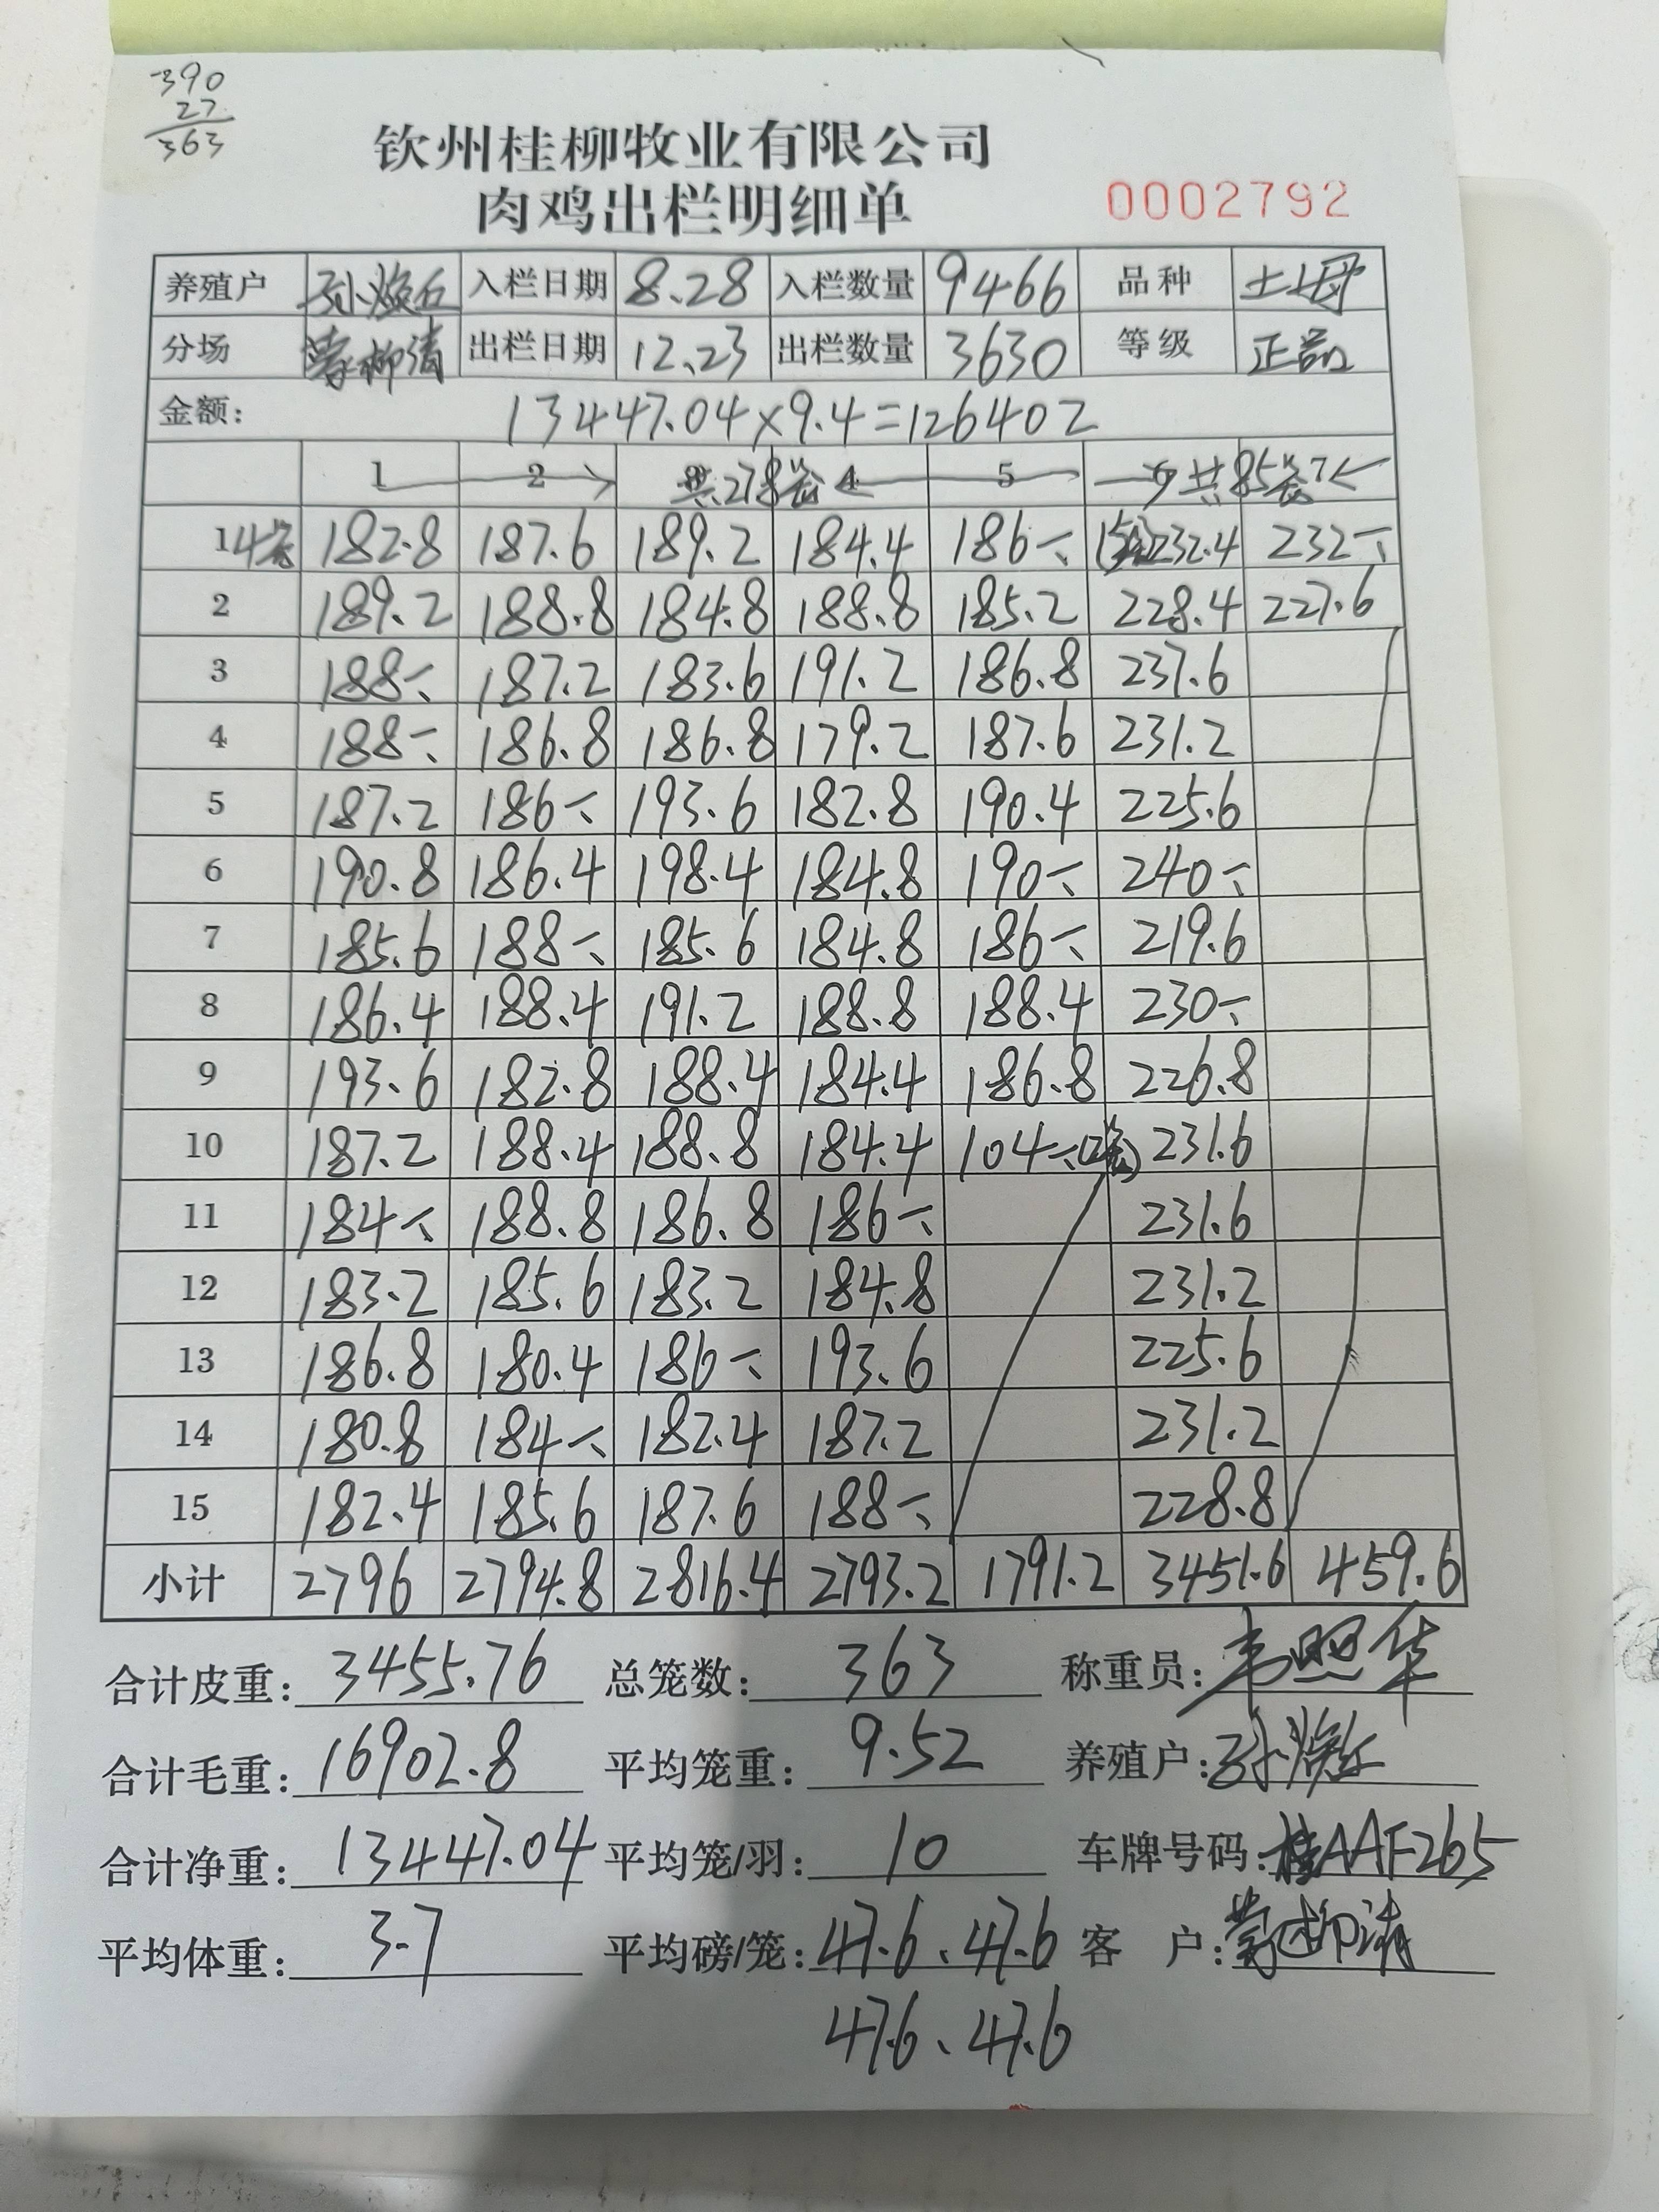 390
27
363
钦州桂柳牧业有限公司
肉鸡出栏明细单
0002792
养殖户 入栏日期 8.28 入栏数量 9466 品种 土
分场 蒙柳清 出栏日期 12.23 出栏数量 3630 等级 正品
金额: 13447.04×9.4=126402
1 2 3 共278笼 4 5 6 共85笼 7
1 4笼 182.8 187.6 189.2 184.4 186 232.4 232
2 189.2 188.8 184.8 188.8 185.2 228.4 227.6
3 188 187.2 183.6 191.2 186.8 237.6
4 188 186.8 186.8 179.2 187.6 231.2
5 187.2 186 193.6 182.8 190.4 225.6
6 190.8 186.4 198.4 184.8 190 240
7 185.6 188 185.6 184.8 186 219.6
8 186.4 188.4 191.2 188.8 188.4 230
9 193.6 182.8 188.4 184.4 186.8 226.8
10 187.2 188.4 188.8 184.4 104 231.6
11 184 188.8 186.8 186 231.6
12 183.2 185.6 183.2 184.8 231.2
13 186.8 180.4 186 193.6 225.6
14 180.8 184 182.4 187.2 231.2
15 182.4 185.6 187.6 188 228.8
小计 2796 2794.8 2816.4 2793.2 1791.2 3451.6 459.6
合计皮重: 3455.76 总笼数: 363 称重员: 韦照华
合计毛重: 16902.8 平均笼重: 9.52 养殖户:
合计净重: 13447.04 平均笼/羽: 10 车牌号码: 桂AAF265
平均体重: 3.7 平均磅/笼: 47.6、47.6 客 户: 蒙柳清
47.6、47.6